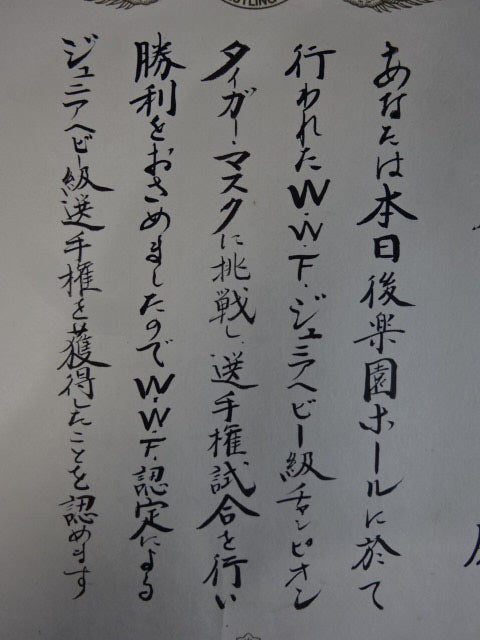 STLING
あなたは本日後楽園ホールに於て
行われたW.W.F.ジュニアヘビー級チャンピオン
タイガー・マスクに挑戦し、選手権試合を行い
勝利をおさめましたのでW.W.F.認定による
ジュニアヘビー級選手権を獲得したことを認めます